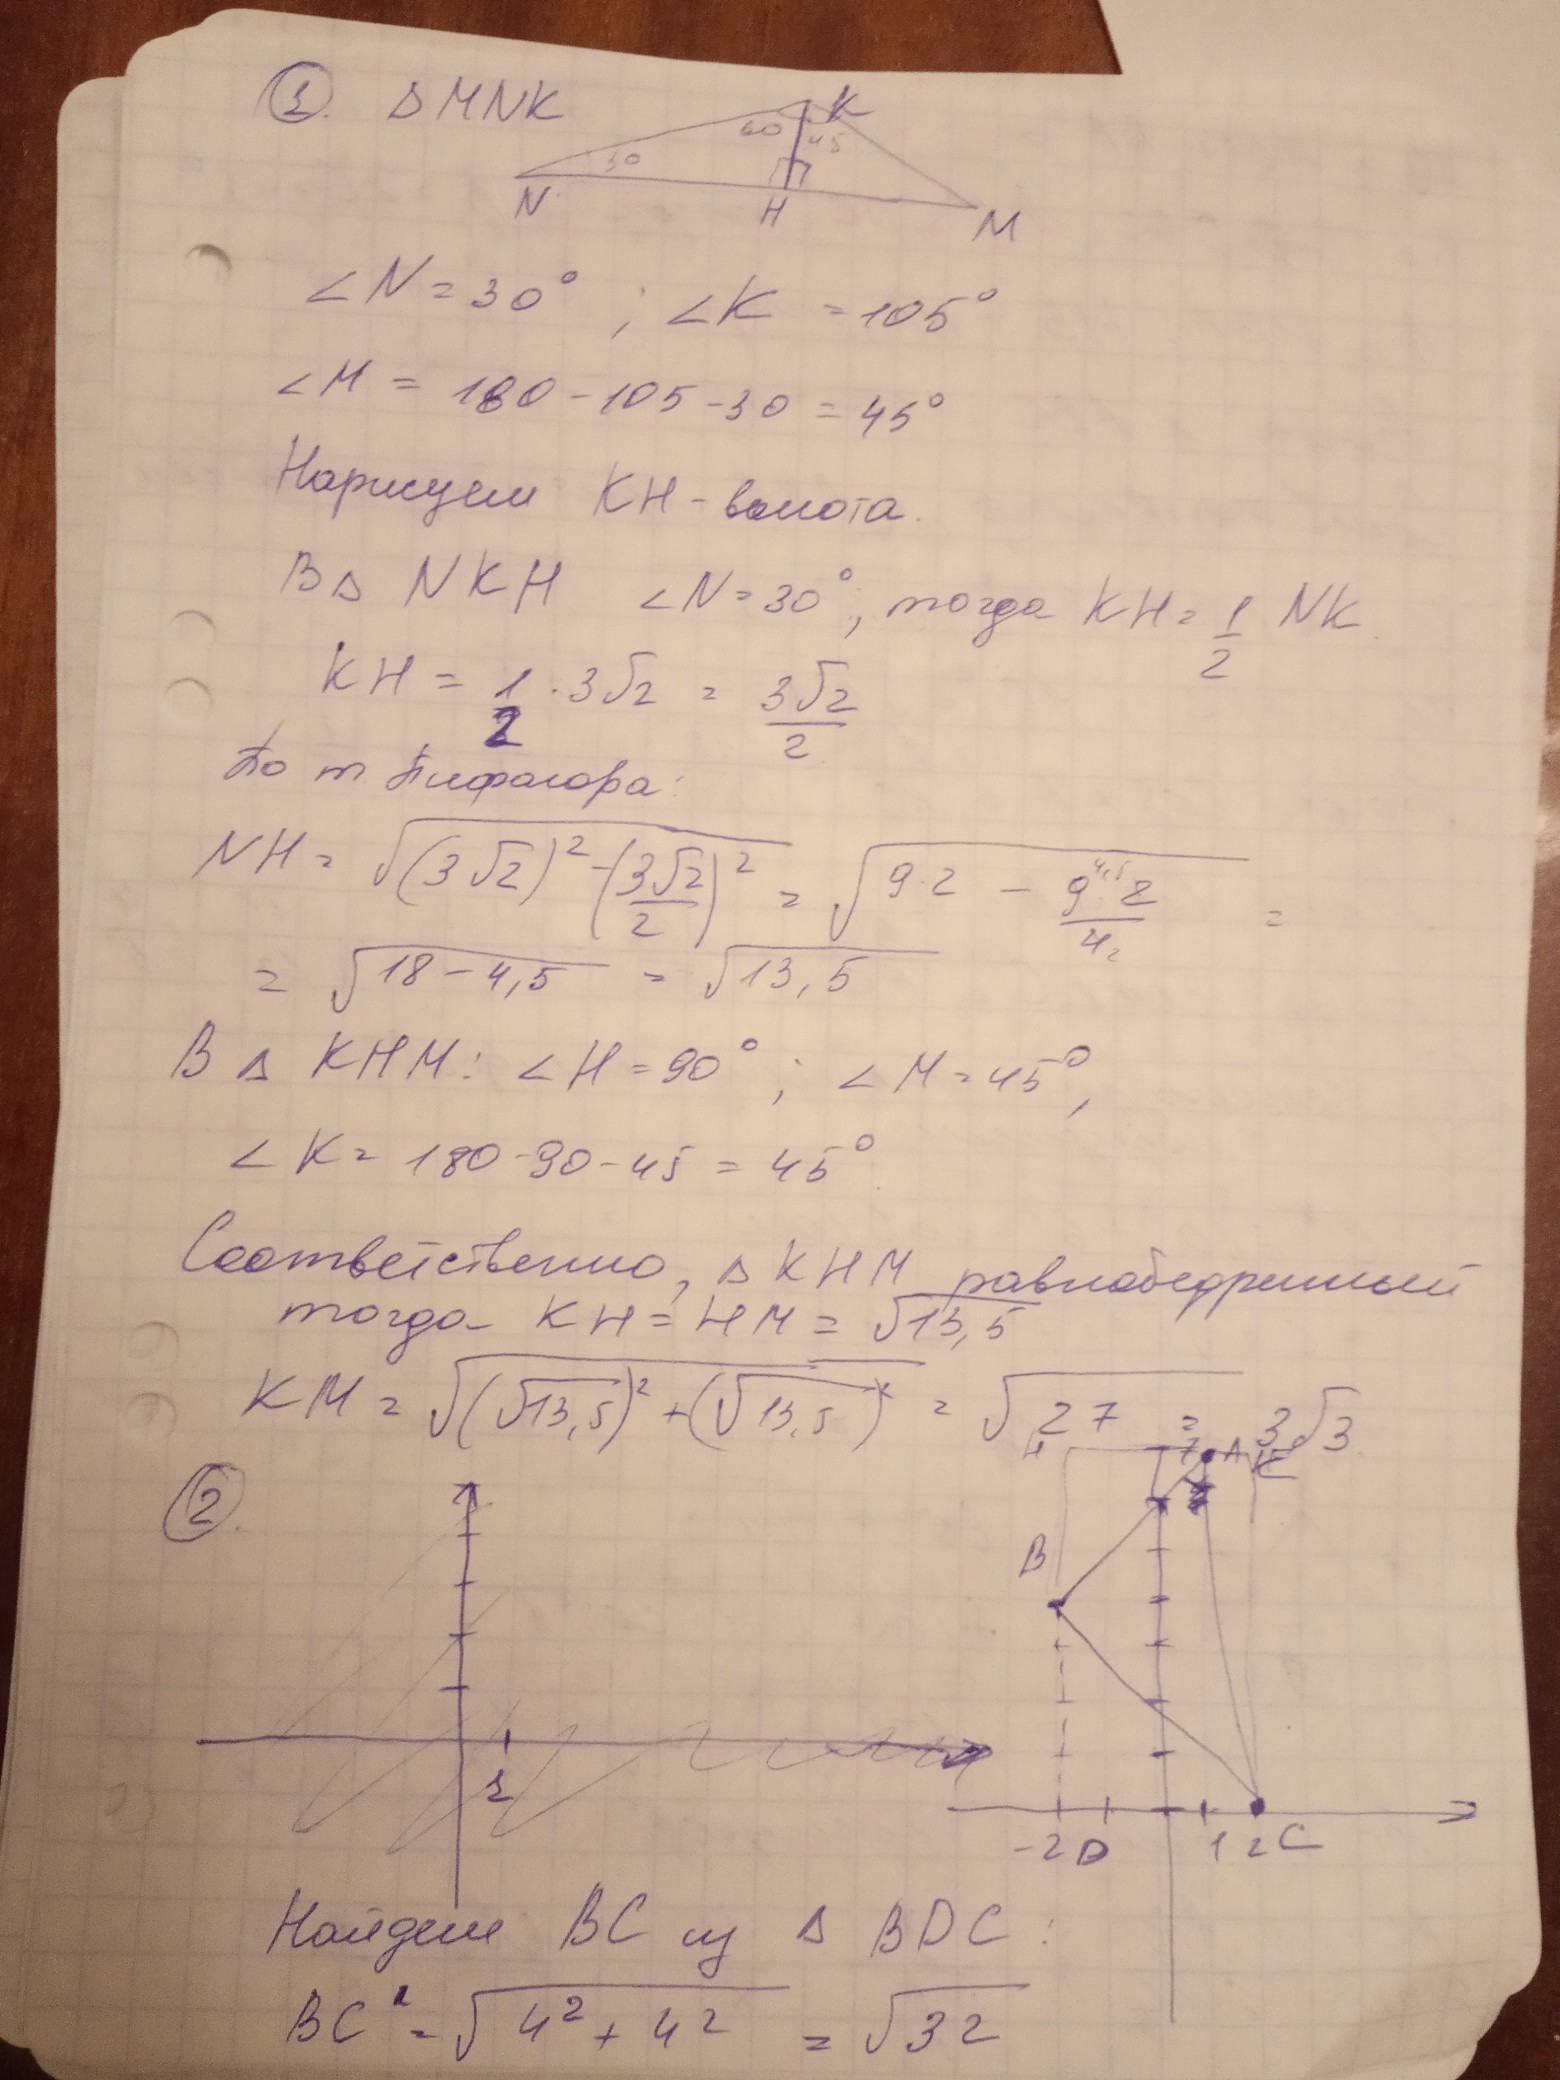 1. Δ MNK
K
60
45
30
N
H
M
∠N = 30° ; ∠K = 105°
∠M = 180 - 105 - 30 = 45°
Нарисуем KH - высота.
В Δ NKH ∠N = 30°, тогда KH = 1/2 NK.
KH = 1/2 · 3√2 = 3√2/2
По т Пифагора:
NH = √((3√2)² - (3√2/2)²) = √(9·2 - 9·2/4) =
= √(18 - 4,5) = √13,5
В Δ KHM: ∠H = 90° ; ∠M = 45°,
∠K = 180 - 90 - 45 = 45°.
Соответственно, Δ KHM равнобедренный
тогда KH = HM = √13,5
KM = √((√13,5)² + (√13,5)²) = √27 = 3√3
2.
H
7
A
B
1
-2 D
1 2 C
Найдем BC из Δ BDC:
BC = √(4² + 4²) = √32